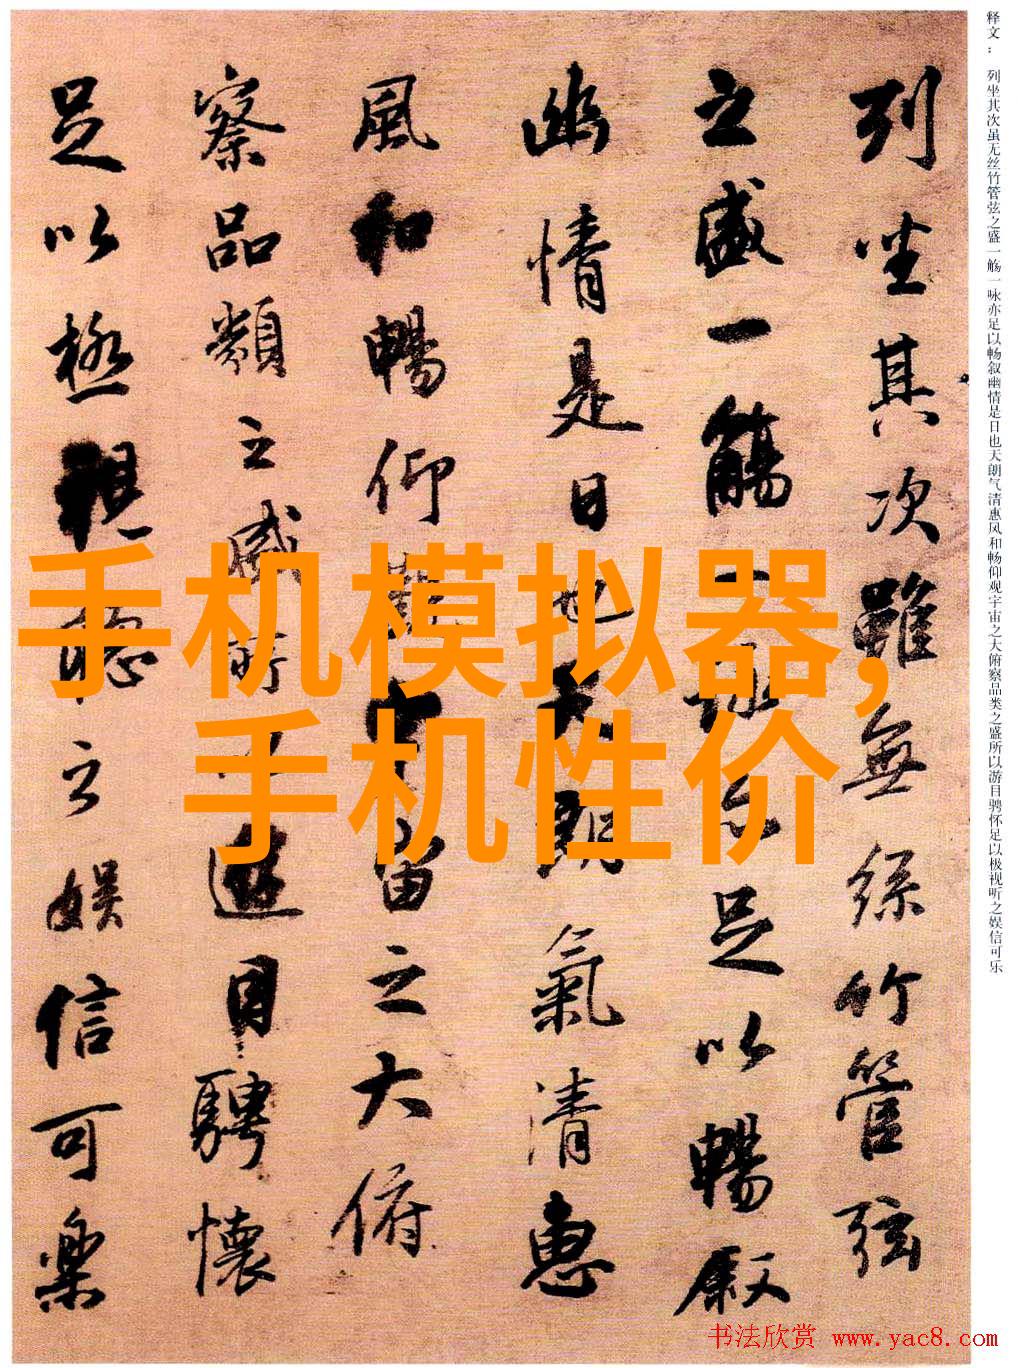 释文：列坐其次虽无丝竹管弦之盛一觞一咏亦足以畅叙幽情是日也天朗气清惠风和畅仰观宇宙之大俯察品类之盛所以游目骋怀足以极视听之娱信可乐
列坐其次雖無絲竹管弦
之盛一觴一詠亦足以暢叙
幽情是日也天朗氣清惠
風和暢仰觀宇宙之大俯
察品類之盛所以遊目騁懷
足以極視聽之娛信可樂
手机模拟器,
手机性价
书法欣赏 www.yac8.com